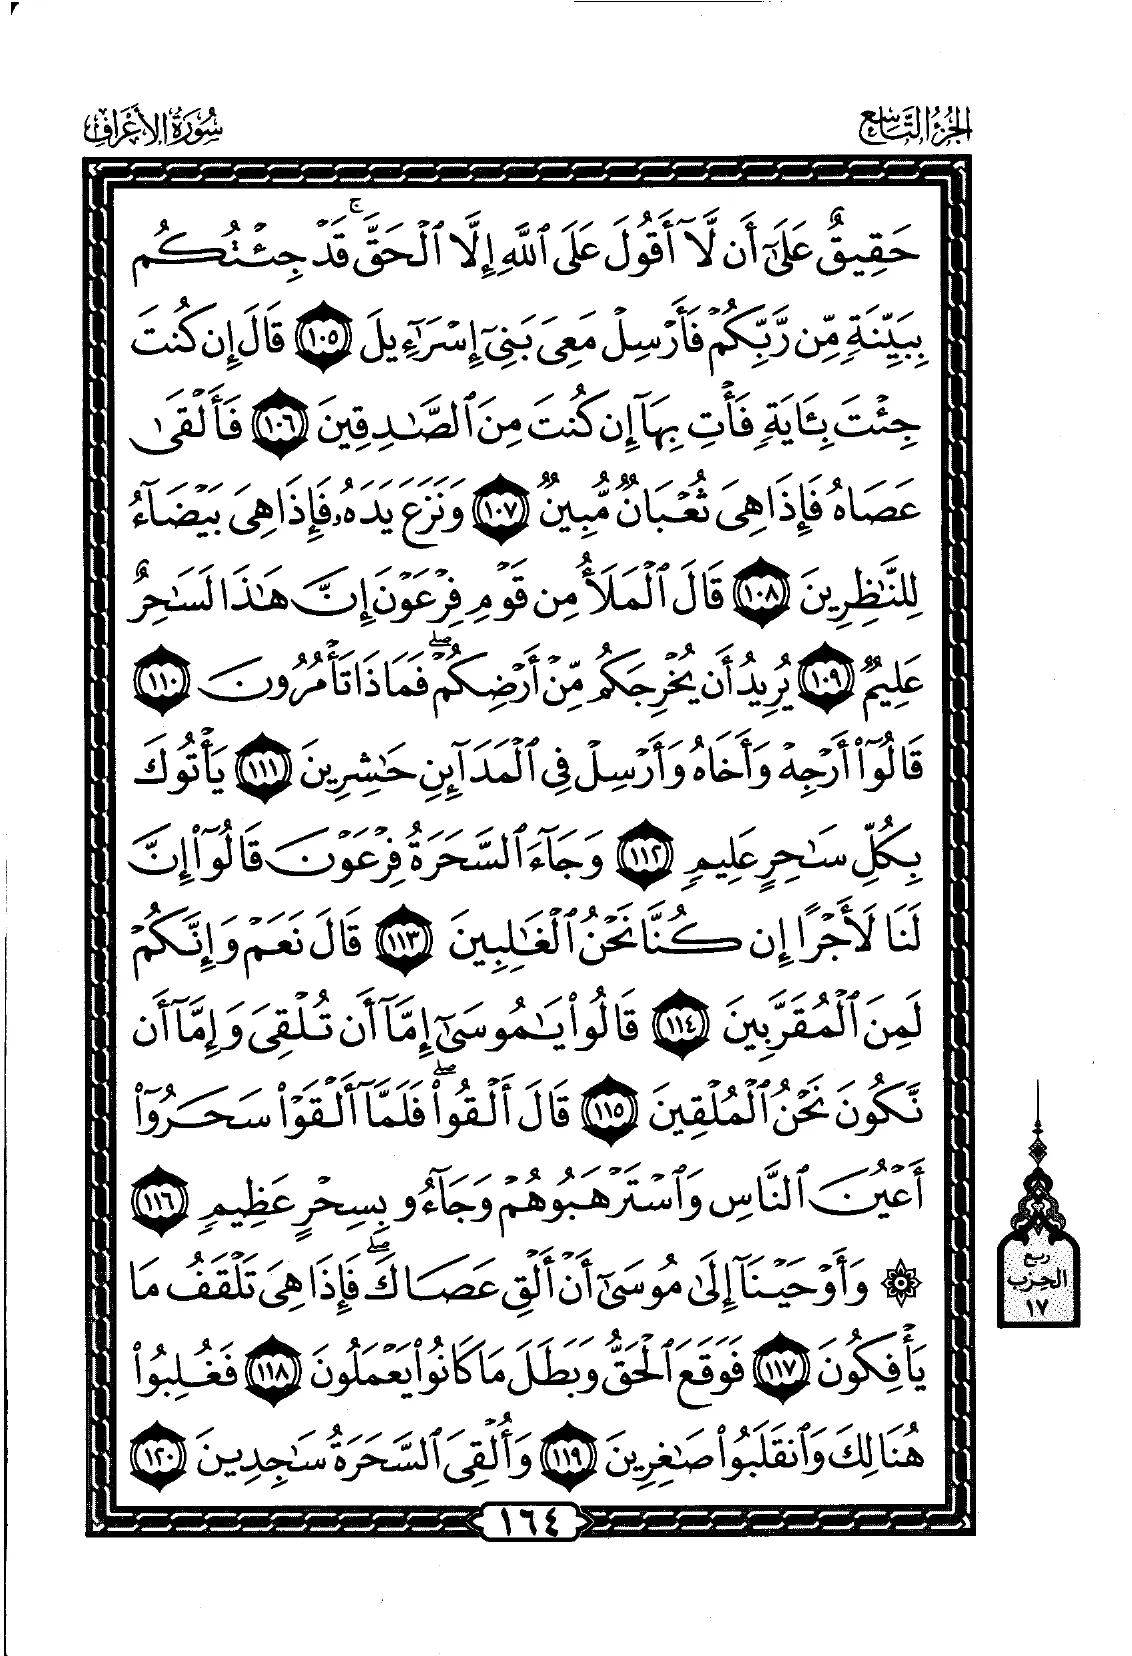 الجزء التاسع
سورة الأعراف
حَقِيقٌ عَلَىٰٓ أَن لَّآ أَقُولَ عَلَى ٱللَّهِ إِلَّا ٱلْحَقَّ ۚ قَدْ جِئْتُكُم
بِبَيِّنَةٍ مِّن رَّبِّكُمْ فَأَرْسِلْ مَعِىَ بَنِىٓ إِسْرَٰٓءِيلَ ١٠٥ قَالَ إِن كُنتَ
جِئْتَ بِـَٔايَةٍ فَأْتِ بِهَآ إِن كُنتَ مِنَ ٱلصَّـٰدِقِينَ ١٠٦ فَأَلْقَىٰ
عَصَاهُ فَإِذَا هِىَ ثُعْبَانٌ مُّبِينٌ ١٠٧ وَنَزَعَ يَدَهُۥ فَإِذَا هِىَ بَيْضَآءُ
لِلنَّـٰظِرِينَ ١٠٨ قَالَ ٱلْمَلَأُ مِن قَوْمِ فِرْعَوْنَ إِنَّ هَـٰذَا لَسَـٰحِرٌ
عَلِيمٌ ١٠٩ يُرِيدُ أَن يُخْرِجَكُم مِّنْ أَرْضِكُمْ ۖ فَمَاذَا تَأْمُرُونَ ١١٠
قَالُوٓا۟ أَرْجِهْ وَأَخَاهُ وَأَرْسِلْ فِى ٱلْمَدَآئِنِ حَـٰشِرِينَ ١١١ يَأْتُوكَ
بِكُلِّ سَـٰحِرٍ عَلِيمٍ ١١٢ وَجَآءَ ٱلسَّحَرَةُ فِرْعَوْنَ قَالُوٓا۟ إِنَّ
لَنَا لَأَجْرًا إِن كُنَّا نَحْنُ ٱلْغَـٰلِبِينَ ١١٣ قَالَ نَعَمْ وَإِنَّكُمْ
لَمِنَ ٱلْمُقَرَّبِينَ ١١٤ قَالُوا۟ يَـٰمُوسَىٰٓ إِمَّآ أَن تُلْقِىَ وَإِمَّآ أَن
نَّكُونَ نَحْنُ ٱلْمُلْقِينَ ١١٥ قَالَ أَلْقُوا۟ ۖ فَلَمَّآ أَلْقَوْا۟ سَحَرُوٓا۟
أَعْيُنَ ٱلنَّاسِ وَٱسْتَرْهَبُوهُمْ وَجَآءُو بِسِحْرٍ عَظِيمٍ ١١٦
۞ وَأَوْحَيْنَآ إِلَىٰ مُوسَىٰٓ أَنْ أَلْقِ عَصَاكَ ۖ فَإِذَا هِىَ تَلْقَفُ مَا
يَأْفِكُونَ ١١٧ فَوَقَعَ ٱلْحَقُّ وَبَطَلَ مَا كَانُوا۟ يَعْمَلُونَ ١١٨ فَغُلِبُوا۟
هُنَالِكَ وَٱنقَلَبُوا۟ صَـٰغِرِينَ ١١٩ وَأُلْقِىَ ٱلسَّحَرَةُ سَـٰجِدِينَ ١٢٠
ربع
الحزب
١٧
١٦٤